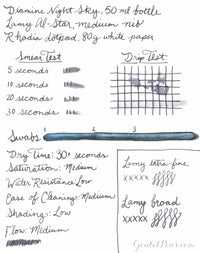 Diamine Night Sky, 50 ml bottle
Lamy Al-Star, medium nib
Rhodia dotpad, 80g white paper
Smear Test
Drip Test
5 seconds
10 seconds
20 seconds
30 seconds
Swabs
1 2 3
Dry Time: 30+ seconds
Saturation: Medium
Water Resistance: Low
Ease of Cleaning: Medium
Shading: Low
Flow: Medium
Lamy extra fine
xxxxx
Lamy broad
xxxxx
GouletPens.com